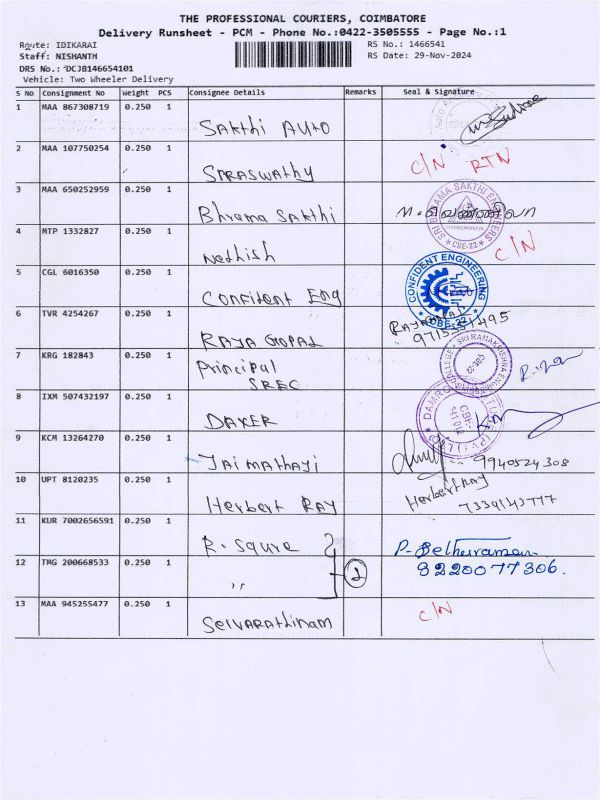 THE PROFESSIONAL COURIERS, COIMBATORE
Delivery Runsheet - PCM - Phone No.:0422-3505555 - Page No.:1
Route: IDIKARAI
RS No.: 1466541
Staff: NISHANTH
RS Date: 29-Nov-2024
DRS No.: DCJB146654101
Vehicle: Two Wheeler Delivery
S No Consignment No Weight PCS Consignee Details Remarks Seal & Signature
1 MAA 867308719 0.250 1
Sakthi Auto
2 MAA 107750254 0.250 1 C/N RTN
Saraswathy
3 MAA 650252959 0.250 1
Bhrama Sakthi
SRI BHRAMA SAKTHI ENGINEERS
CBE-22
4 MTP 1332827 0.250 1 C/N
Nethish
5 CGL 6016350 0.250 1
Confident Eng
CONFIDENT ENGINEERING
CBE-22
6 TVR 4254267 0.250 1
RAJA GOPAL
RAJAGOPAL
7 KRG 182843 0.250 1
Principal
SREC
8 IXM 507432197 0.250 1
DAKER
9 KCM 13264270 0.250 1
Jai Mathaji 9940524308
10 UPT 8120235 0.250 1
Herbert RAY
Herbert RAY
11 KUR 7002656591 0.250 1
R. Squre
P. Sethuraman
12 TMG 200668533 0.250 1 2 8220077306.
,,
13 MAA 945255477 0.250 1 C/N
Selvarathinam